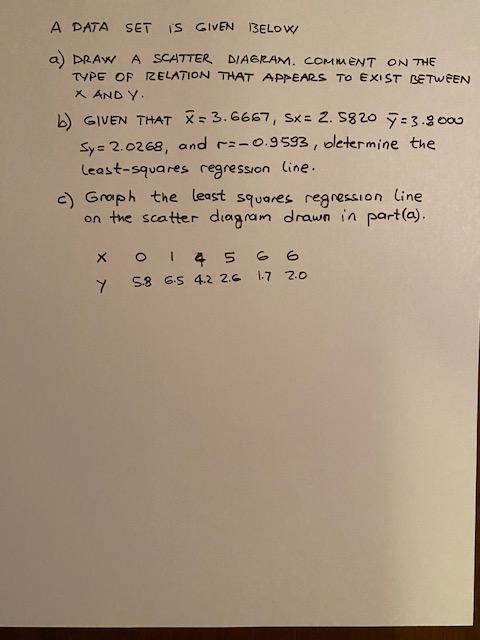 A DATA SET IS GIVEN BELOW
a) DRAW A SCATTER DIAGRAM. COMMENT ON THE
TYPE OF RELATION THAT APPEARS TO EXIST BETWEEN
X AND Y.
b) GIVEN THAT x̄ = 3.6667, Sx = 2.5820 ȳ = 3.8000
Sy = 2.0268, and r = -0.9593, determine the
least-squares regression line.
c) Graph the least squares regression line
on the scatter diagram drawn in part(a).
X 0 1 4 5 6 6
Y 5.8 6.5 4.2 2.6 1.7 2.0